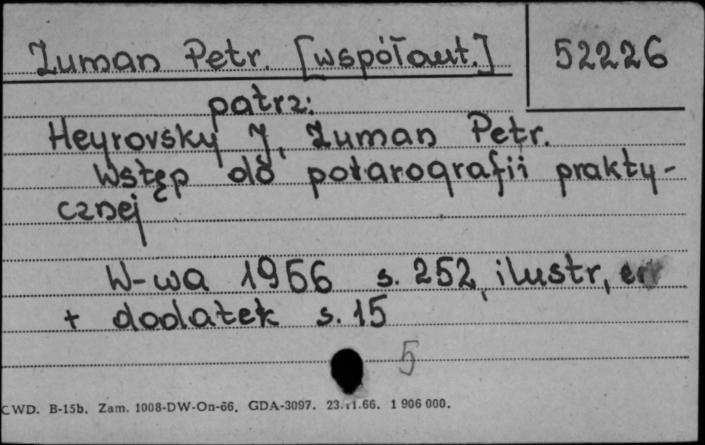 Zuman Petr. [współaut.]
52226
patrz:
Heyrovsky J, Zuman Petr.
Wstęp do polarografii prakty-
cznej
W-wa 1956 s. 252, ilustr,
+ dodatek s. 15
5
CWD. B-15b. Zam. 1008-DW-On-66. GDA-3097. 23.11.66. 1 906 000.